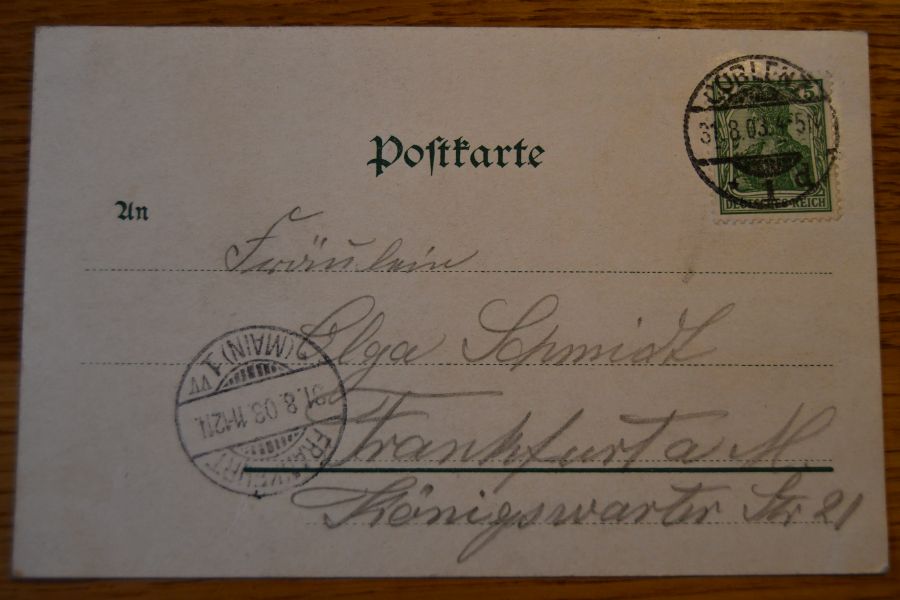 Postkarte
COBLENZ
31.8.03. 4-5N
* 1 d
5
DEUTSCHES REICH
An
Fräulein
Elga Schmidt
Frankfurt a M.
Königswarter Str 21
FRANKFURT (MAIN) 1
31.8.03. 11-12N